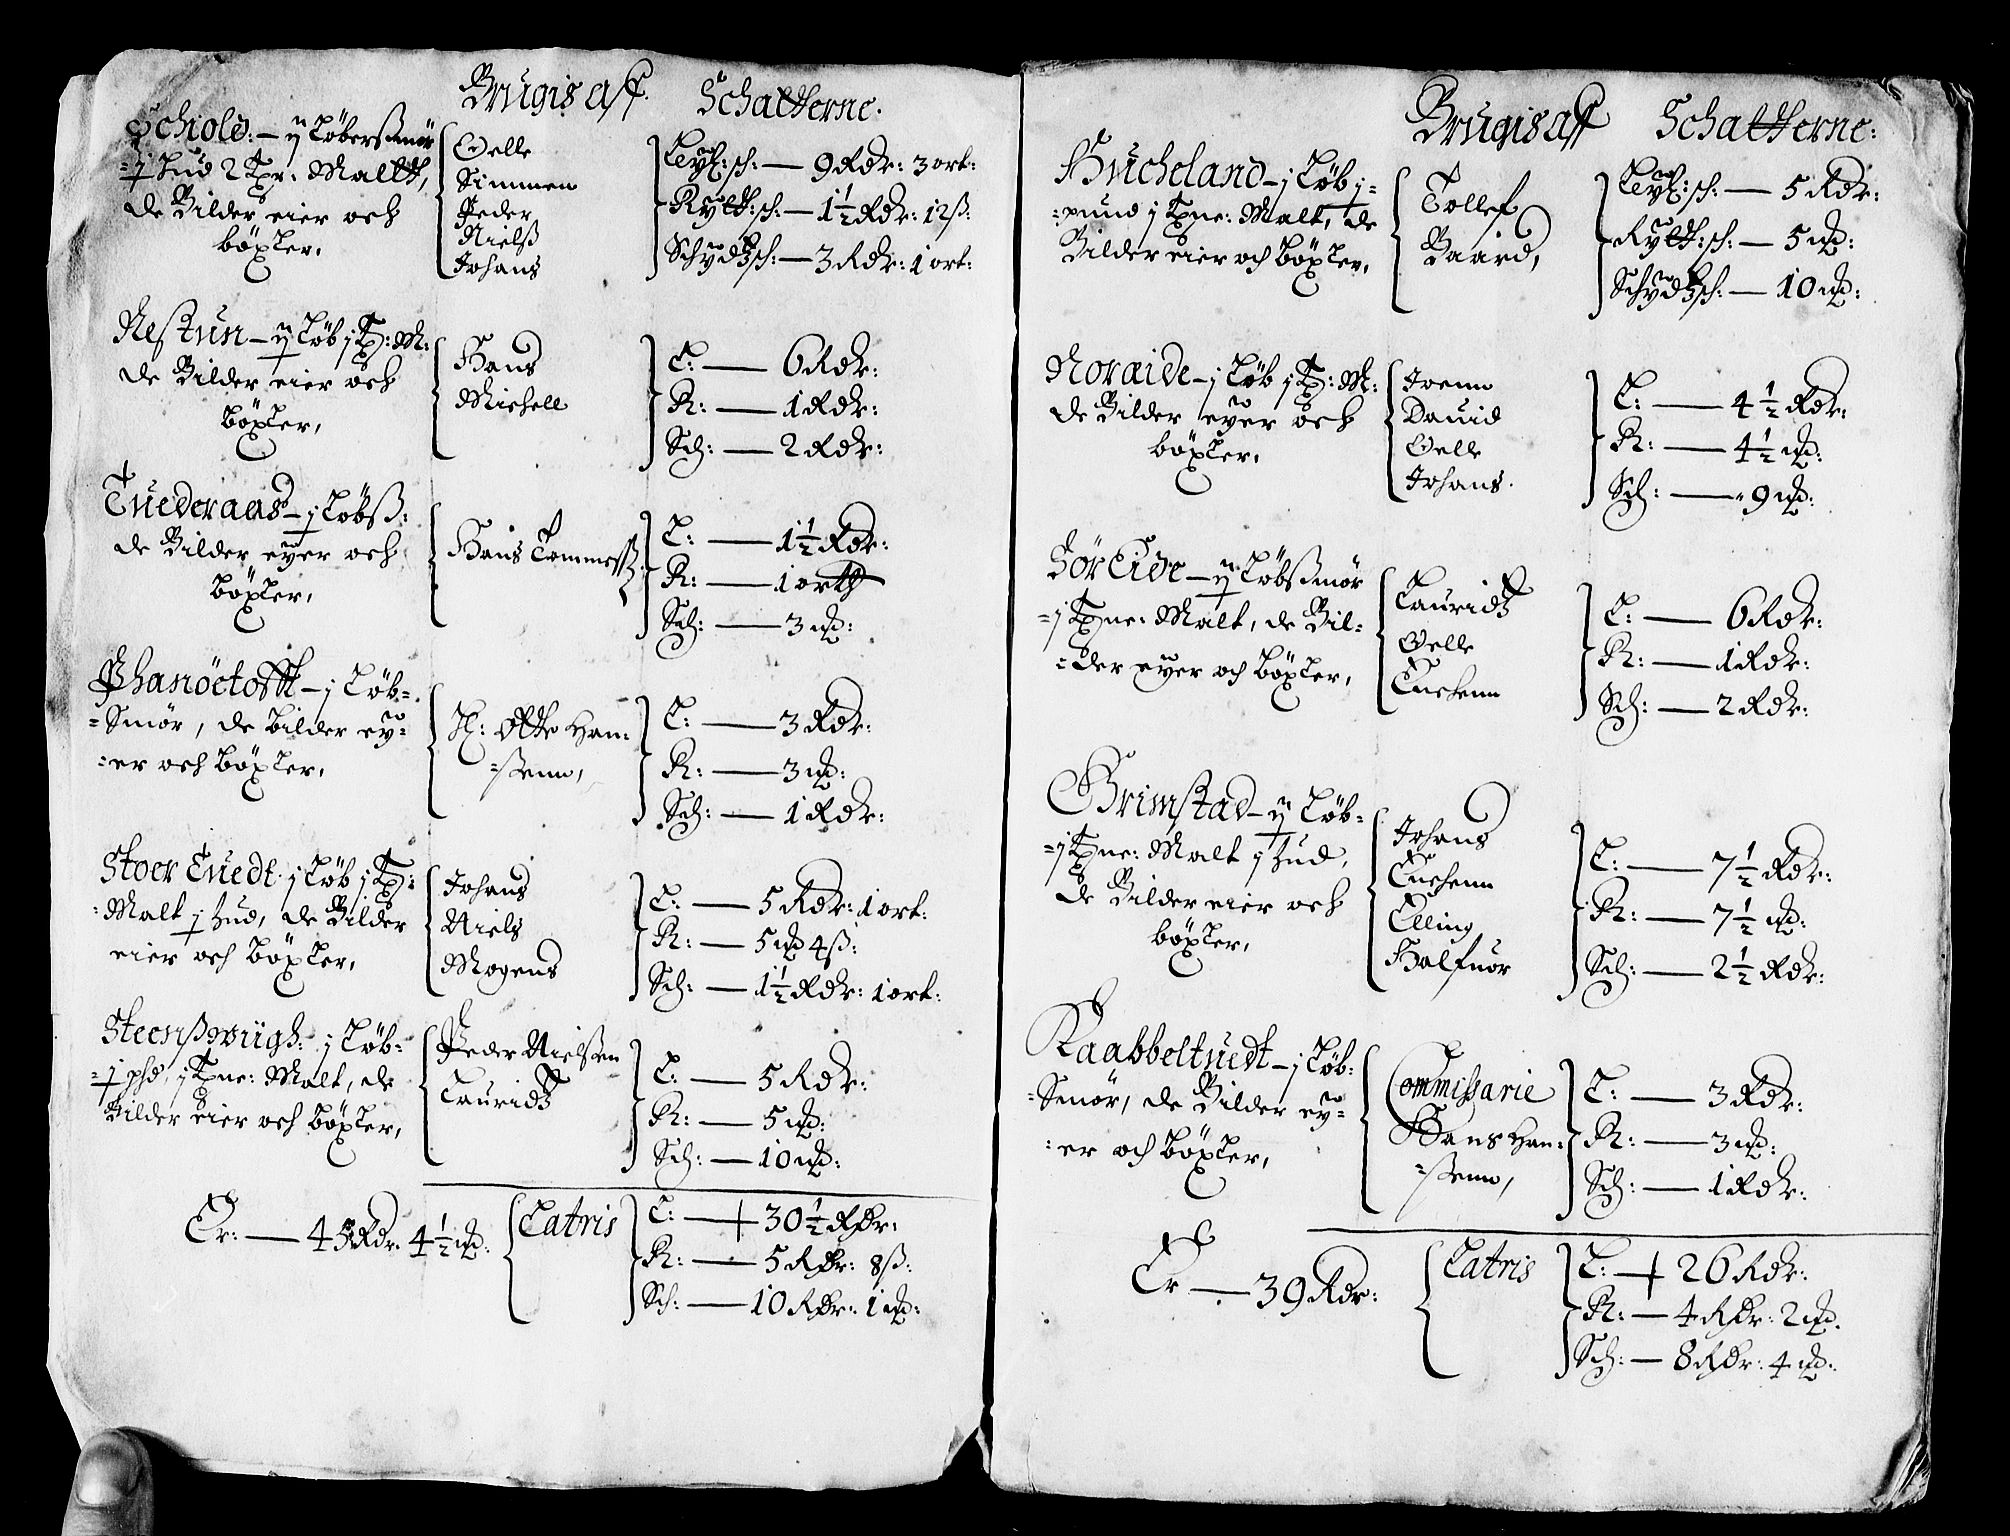 Brugis aff. Schatterne.
Schiold: – ij Løberssmør
j Hud 2 Tpr. Maltt,
de Bilder eier och
böxler,
Oelle
Simmen
Peder
Nielß
Johans
Leyl: sch: — 9 Rdr: 3 ort:
Rytt: sch: — 1½ Rdr: 12 ß:
Schydtz sch: — 3 Rdr: 1 ort:
Nestun – ij Løb j Tp: M:
de Bilder eier och
böxler,
Hans
Michell
L: — 6 Rdr:
R: — 1 Rdr:
Sch: — 2 Rdr:
Tuederaas – j Løbß:
de Bilder eyer och
böxler,
Hans Tommeß:
L: — 1½ Rdr:
R: — 1 orth
Sch: — 3 mk:
Phanöetofft – j Løb-
Smør, de bilder ey-
er och böxler,
H: Otto Han-
ßenn,
L: — 3 Rdr:
R: — 3 mk:
Sch: — 1 Rdr:
Stoer Tuedt. j Løb j Tp:
Malt j Hud, de Bilder
eier och böxler,
Johans
Niels
Mogens
L: — 5 Rdr: 1 ort:
R: — 5 mk 4 ß:
Sch: — 1½ Rdr: 1 ort:
Steenßwiigh: j Løb-
j phd, j Tpne: Malt, de
Bilder eier och böxler,
Peder Nielßen
Lauridtz
L: — 5 Rdr:
R: — 5 mk:
Sch: — 10 mk:
Er: — 45 Rdr. 4½ mk:
Latris
L: — 30½ Rdr:
R: — 5 Rdr: 8 ß:
Sch: — 10 Rdr: 1 mk:
Brugis aff Schatterne:
Hucheland – j Løb j
pund j Tpne: Malt, de
Bilder eier och böxler,
Tollef
Baard,
Leyl: sch: — 5 Rdr:
Rytt: sch: — 5 mk:
Schydtz sch: — 10 mk:
Noraide – j Løb j Tp: M:
de Bilder eyer och
böxler,
Joenn
Dauid
Oelle
Johans.
L: — 4½ Rdr:
R: — 4½ mk:
Sch: — 9 mk:
Sör Eide – ij Løbßmör
j Tpne: Malt, de Bil-
der eyer och böxler,
Lauridtz
Oelle
Enchenn
L: — 6 Rdr:
R: — 1 Rdr:
Sch: — 2 Rdr:
Grimstad – ij Løb-
j Tpne: Malt j Hud,
de Bilder eier och
böxler,
Johans
Enchenn
Elling,
Halfuor
L: — 7½ Rdr:
R: — 7½ mk:
Sch: — 2½ Rdr:
Raabbeltuedt – j Løb:
Smør, de Bilder ey-
er och böxler,
Commissarie
Hans Han-
ßenn,
L: — 3 Rdr:
R: — 3 mk:
Sch: — 1 Rdr:
Er — 39 Rdr:
Latris
L: — 26 Rdr:
R: — 4 Rdr: 2 mk.
Sch: — 8 Rdr: 4 mk: